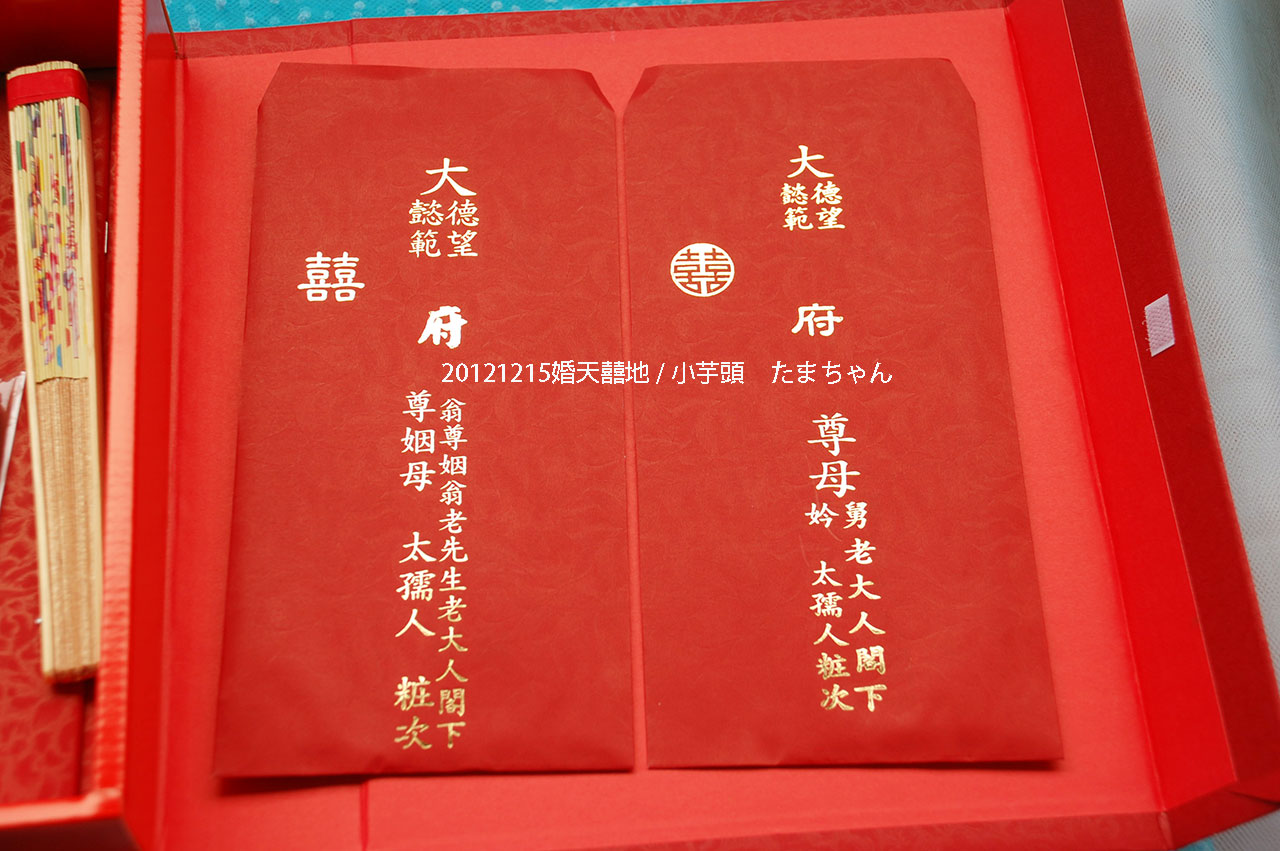 大
德望
懿範
府
翁尊姻翁老先生老大人閣下
尊姻母 太孺人 粧次
囍
大
德望
懿範
府
尊
母
舅老大人閣下
妗 太孺人粧次
囍
20121215婚天囍地 / 小芋頭　たまちゃん